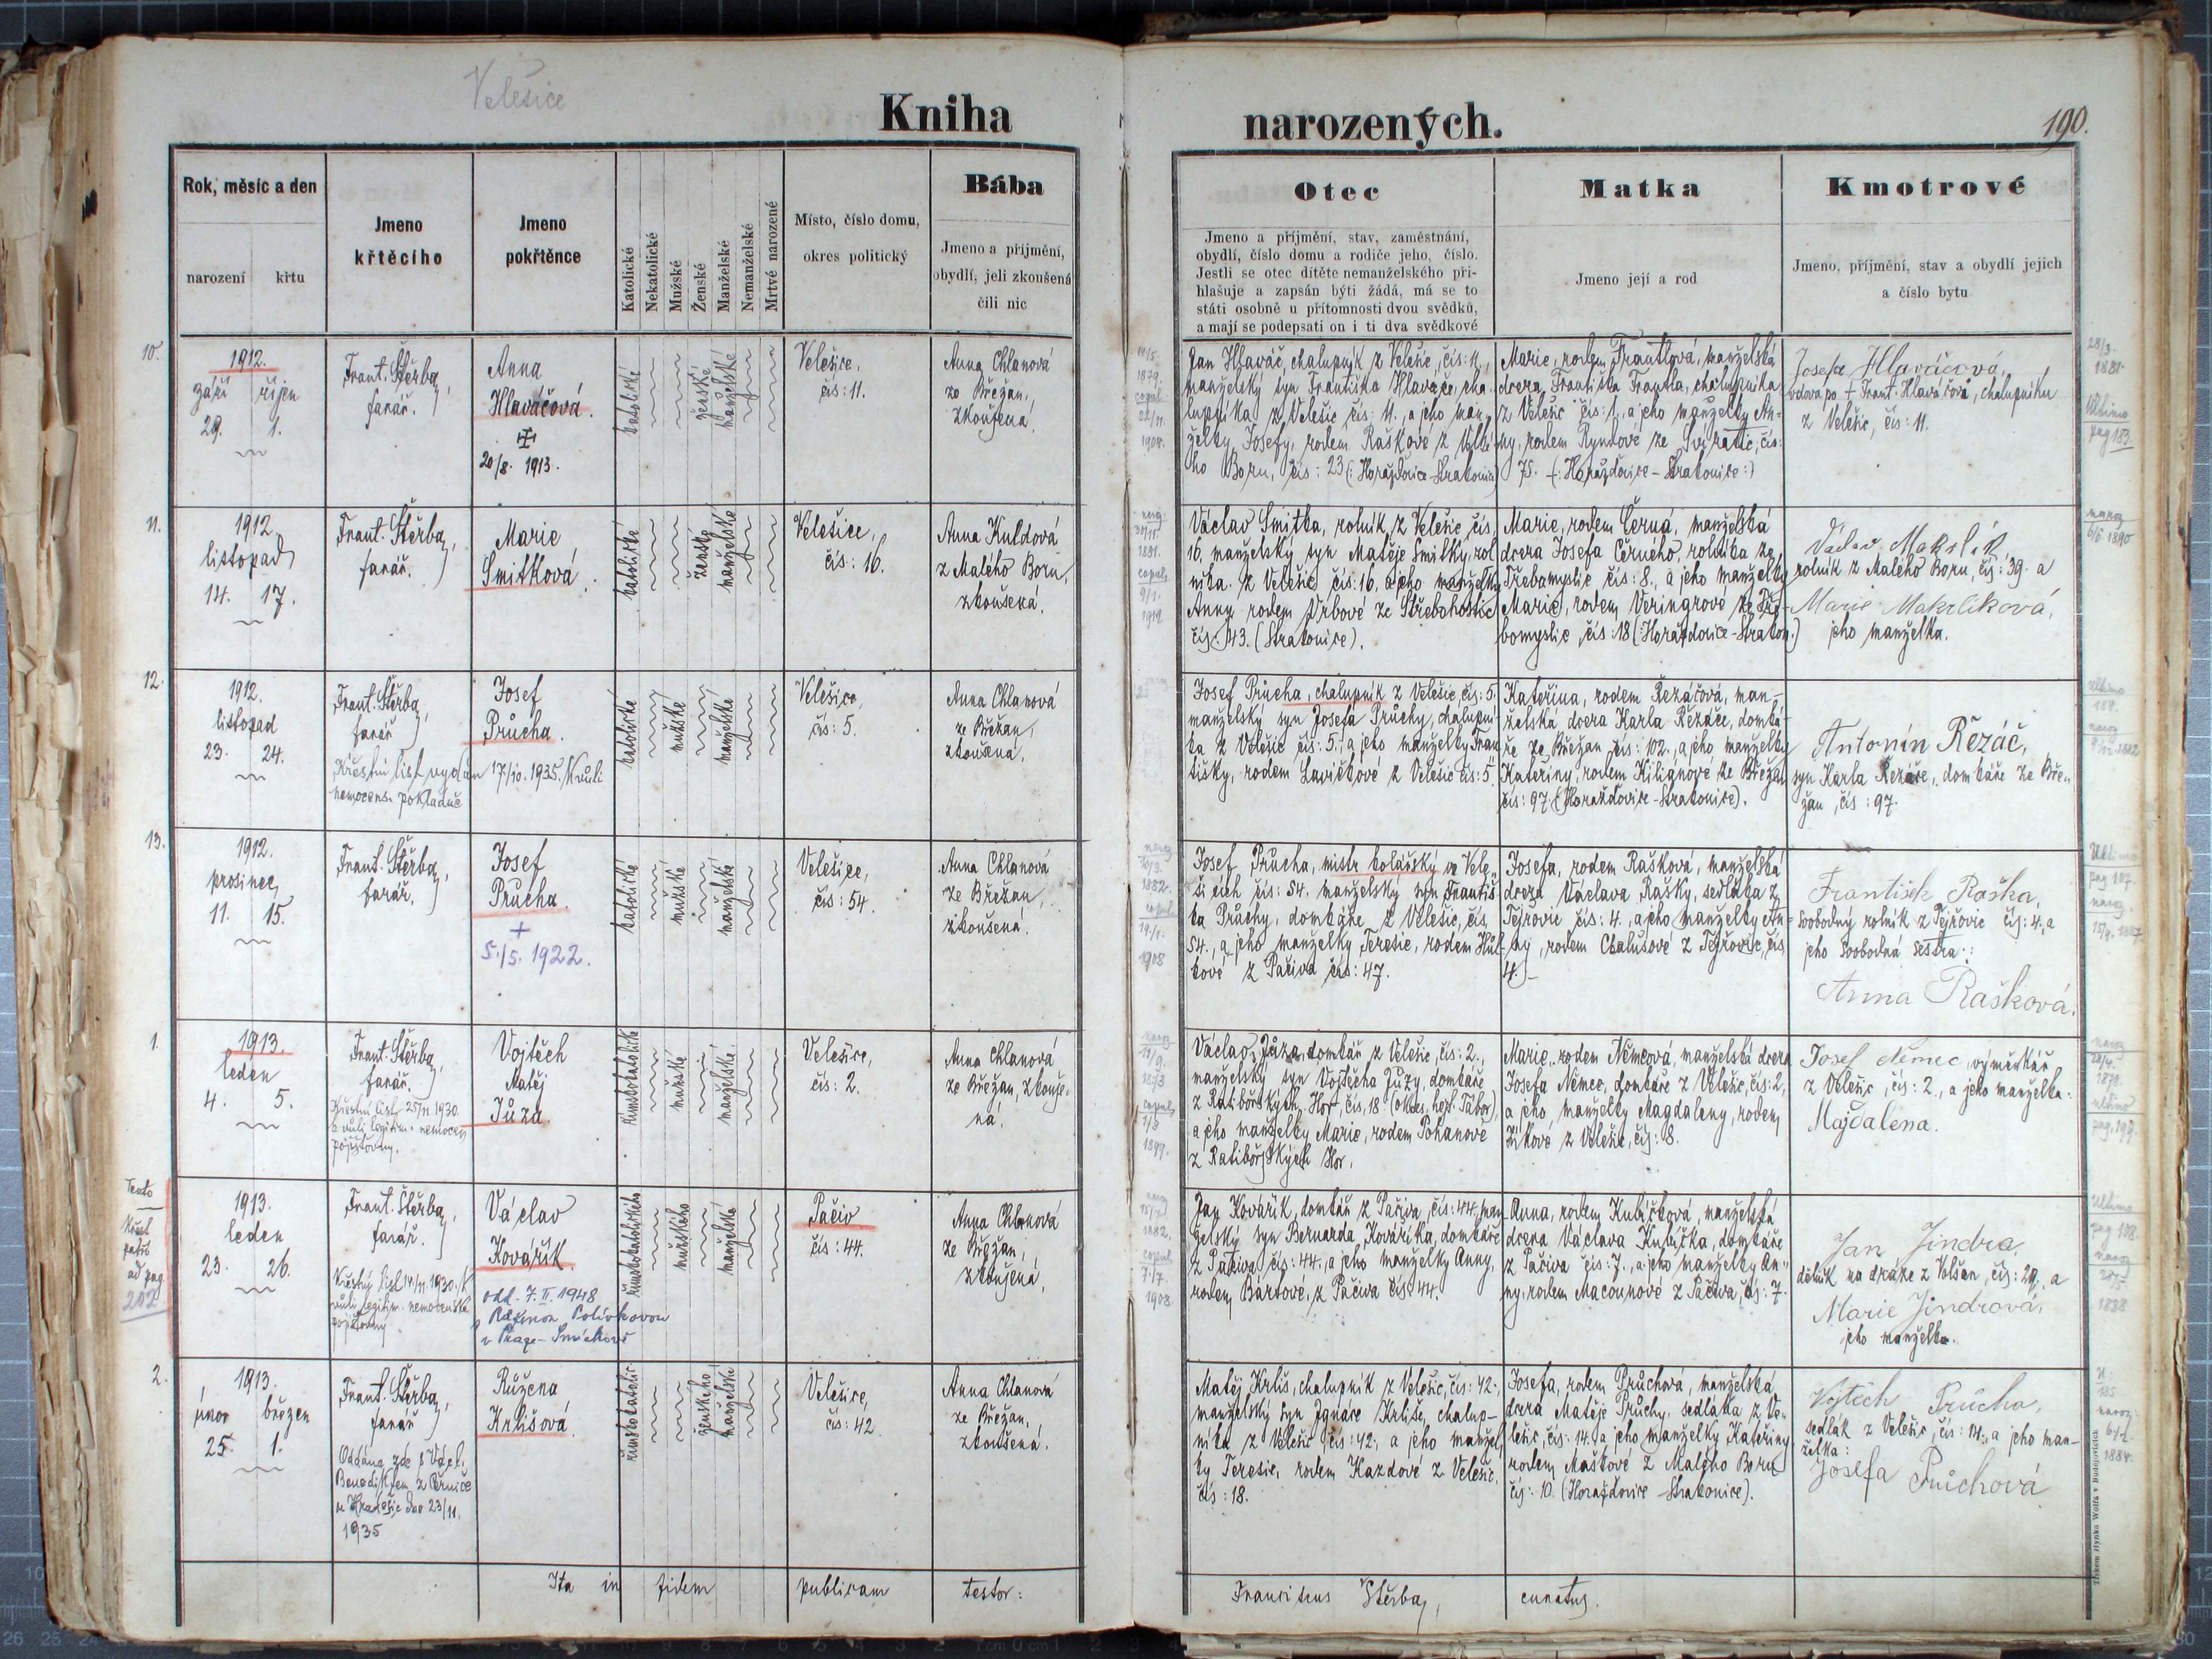 Velešice
Kniha
narozených.
190.
Rok, měsíc a den
narození křtu
Jmeno
křtěcího
Jmeno
pokřtěnce
Katolické
Nekatolické
Mužské
Ženské
Manželské
Nemanželské
Mrtvé narozené
Místo, číslo domu,
okres politický
Bába
Jmeno a příjmění,
obydlí, jeli zkoušená
čili nic
Otec
Jmeno a příjmění, stav, zaměstnání,
obydlí, číslo domu a rodiče jeho, číslo.
Jestli se otec dítěte nemanželského při-
hlašuje a zapsán býti žádá, má se to
státi osobně u přítomnosti dvou svědků,
a mají se podepsati on i ti dva svědkové
Matka
Jmeno její a rod
Kmotrové
Jmeno, příjmění, stav a obydlí jejich
a číslo bytu
10.
1912.
září říjen
29. 1.
Frant. Štěrba,
farář.
Anna
Hlaváčová.
20/8. 1913.
katolické
ženské
manželské
Velešice,
čis: 11.
Anna Chlanová
ze Břežan,
zkoušená.
Jan Hlaváč, chalupník z Velešic, čis: 11.,
manželský syn Františka Hlaváče, cha-
lupníka z Velešic čis: 11., a jeho man-
želky Josefy, rodem Raškové z Velké-
ho Boru, čis: 23 (: Horažďovice-Strakonice)
Marie, rodem Frantlová, manželská
dcera Františka Frantla, chalupníka
z Velešic čis: 1., a jeho manželky An-
ny, rodem Ryndové ze Svíratic, čis:
75. (: Horažďovice-Strakonice :)
Josefa Hlaváčová,
vdova po † Frant. Hlaváčovi, chalupníku
z Velešic, čis: 11.
14/5.
1879.
copul.
22/11.
1904.
28/3.
1881.
Ultimo
pag 183.
11.
1912.
listopad
14. 17.
Frant. Štěrba,
farář.
Marie
Smitková.
katolické
ženské
manželské
Velešice,
čis: 16.
Anna Kuldová
z Malého Boru,
zkoušená.
Václav Smitka, rolník z Velešic, čis.
16, manželský syn Matěje Smitky, rol
níka z Velešic čis: 16, a jeho manželky
Anny rodem Vrbové ze Střebohostic
čis: 43. (Strakonice).
Marie, rodem Černá, manželská
dcera Josefa Černého, rolníka ze
Třebomyslic čis: 8., a jeho manželky
Marie, rodem Veringrové ze Tře-
bomyslic, čis: 18 (Horažďovice-Strakon.)
Václav Makrlík
rolník z Malého Boru, čis: 39. a
Marie Makrlíková,
jeho manželka.
copul.
9/1.
1912
naroz
6/6. 1890
12.
1912.
listopad
23. 24.
Frant. Štěrba,
farář
Josef
Průcha.
Křestní list vydán 17/10. 1935 kvůli
nemocens. pokladně
katolické
mužské
manželské
Velešice,
čis: 5.
Anna Chlanová
ze Břežan,
zkoušená.
Josef Průcha, chalupník z Velešic, čis: 5.,
manželský syn Josefa Průchy, chalupní-
ka z Velešic čis: 5., a jeho manželky Fran
tišky, rodem Lavičkové z Velešic čis: 5.
Kateřina, rodem Řezáčová, man-
želská dcera Karla Řezáče, domká-
ře ze Břežan čis: 102., a jeho manželky
Kateřiny, rodem Kiliánové ze Břežan
čis: 97 (Horažďovice-Strakonice).
Antonín Řezáč,
syn Karla Řezáče, domkáře ze Bře-
žan, čis: 97.
13.
1912.
prosinec
11. 15.
Frant. Štěrba,
farář.
Josef
Průcha.
+
5./5. 1922.
katolické
mužské
manželské
Velešice,
čis: 54.
Anna Chlanová
ze Břežan,
zkoušená.
Josef Průcha, mistr kolářský ve Vele-
šicích čis: 54. manželský syn Františ
ka Průchy, domkáře z Velešic, čis.
54., a jeho manželky Terezie, rodem Hůl-
kové z Pačiva čis: 47.
Josefa, rodem Rašková, manželská
dcera Václava Rašky, sedláka z
Tejřovic čis: 4., a jeho manželky An-
ny, rodem Chalušové z Tejřovic, čis
4.
František Raška,
svobodný rolník z Tejřovic čis: 4., a
jeho svobodná sestra:
Anna Rašková.
1882.
copul.
14/1.
1908
Ultimo
pag 187.
naroz.
15/9. 1887.
1.
1913.
leden
4. 5.
Frant. Štěrba,
farář.
Křestní list 25/11. 1930.
kvuli legitim. nemocen
pojišťovny.
Vojtěch
Matěj
Jůza.
římskokatolické
mužské
manželské
Velešice,
čis: 2.
Anna Chlanová
ze Břežan, zkouše-
ná.
Václav Jůza, domkář z Velešic, čis: 2.,
manželský syn Vojtěcha Jůzy, domkáře
z Ratibořských Hor, čis. 18. (okres. hejt. Tábor),
a jeho manželky Marie, rodem Pohanové
z Ratibořských Hor.
Marie, rodem Němcová, manželská dcera
Josefa Němce, domkáře z Velešic, čis: 2,
a jeho manželky Magdaleny, rodem
Zíkové z Velešic, čis: 8.
Josef Němec, výměnkář
z Velešic, čis: 2., a jeho manželka:
Majdalena.
naroz
14/9.
1873
copul.
1/8
1899.
naroz
28/4.
1878.
ultimo
pag. 179.
Tento
křest
patří
ad pag
202
1913.
leden
23. 26.
Frant. Štěrba,
farář.
Křestný list 14/11. 1930. k
vůli legitim. nemocenské
pojišťovny
Václav
Kovářík.
odd. 7. II. 1948
s Růženou Polívkovou
v Praze-Smíchově
římskokatolického
mužského
manželské
Pačiv
čis: 44.
Anna Chlanová
ze Břežan,
zkoušená.
Jan Kovářík, domkář z Pačiva, čis: 44, man-
želský syn Bernarda Kováříka, domkáře
z Pačiva čis: 44., a jeho manželky Anny,
rodem Bártové, z Pačiva čis: 44.
Anna, rodem Kubíčková, manželská
dcera Václava Kubíčka, domkáře
z Pačiva čis: 7., a jeho manželky An-
ny, rodem Macounové z Pačiva, čis: 7.
Jan Jindra,
dělník na dráze z Volšan, čis: 29., a
Marie Jindrová,
jeho manželka.
1882.
copul
7/7.
1908.
Ultimo
pag 188.
naroz
1888
2.
1913.
únor březen
25. 1.
Frant. Štěrba,
farář
Oddána zde s Václ.
Benediktem z Černic
u Hradešic dne 23/11.
1935
Růžena
Krlišová.
římskokatolic.
ženského
manželské
Velešice,
čis: 42.
Anna Chlanová
ze Břežan,
zkoušená.
Matěj Krliš, chalupník z Velešic, čis: 42.,
manželský syn Ignáce Krliše, chalup-
níka z Velešic čis: 42., a jeho manžel
ky Terezie, rodem Kazdové z Velešic,
čis: 18.
Josefa, rodem Průchová, manželská
dcera Matěje Průchy, sedláka z Ve-
lešic, čis: 14. a jeho manželky Kateřiny
rodem Maškové z Malého Boru
čis: 10. (Horažďovice-Strakonice).
Vojtěch Průcha,
sedlák z Velešic, čis: 14., a jeho man-
želka:
Josefa Průchová
185
naroz.
1884.
Ita in fidem publicam testor:
Franciscus Štěrba, curatus.
Tiskem Hynka Wolfa v Budějovicích